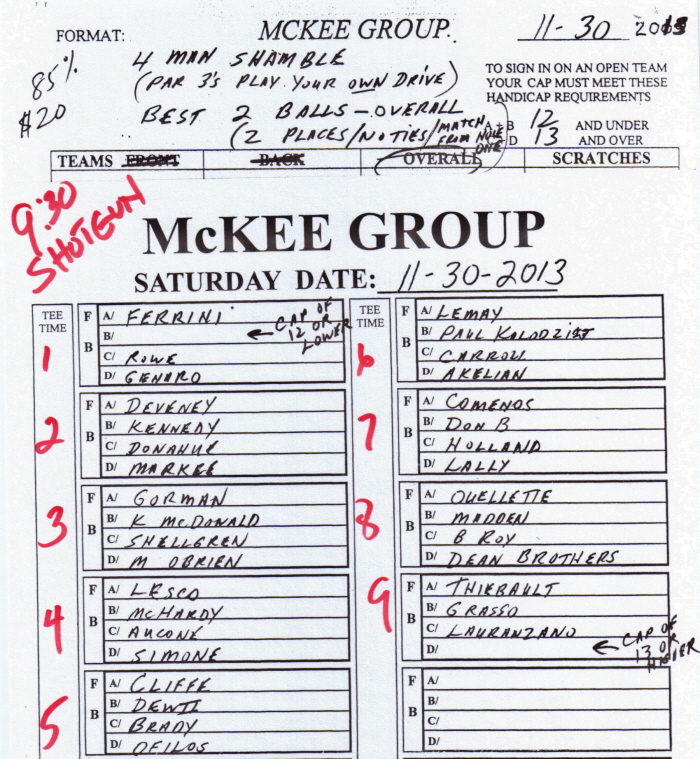 FORMAT: MCKEE GROUP. 11-30 2013
85%
$20
4 MAN SHAMBLE
(PAR 3'S PLAY YOUR OWN DRIVE)
BEST 2 BALLS - OVERALL
(2 PLACES/NOTIES/MATCH FROM HOLE ONE)
TO SIGN IN ON AN OPEN TEAM
YOUR CAP MUST MEET THESE
HANDICAP REQUIREMENTS
A + B 12 AND UNDER
D 13 AND OVER
TEAMS FRONT BACK OVERALL SCRATCHES
9:30
SHOTGUN
McKEE GROUP
SATURDAY DATE: 11-30-2013
TEE TIME
1
F B
A/ FERRINI
B/ ← CAP OF 12 OR LOWER
C/ ROWE
D/ GENARO
2
F B
A/ DEVENEY
B/ KENNEDY
C/ DONAHUE
D/ MARKEE
3
F B
A/ GORMAN
B/ K MCDONALD
C/ SHELLGREN
D/ M OBRIEN
4
F B
A/ LESCO
B/ MCHARDY
C/ AUCONE
D/ SIMONE
5
F B
A/ CLIFFE
B/
C/ BRADY
D/ OFILOS
TEE TIME
6
F B
A/ LEMAY
B/ PAUL
C/ CARROLL
D/ AKELIAN
7
F B
A/ COMENOS
B/ DON B
C/ HOLLAND
D/ LALLY
8
F B
A/ OUELLETTE
B/ MADDEN
C/ B ROY
D/ DEAN BROTHERS
9
F B
A/ THIEBAULT
B/ GRASSO
C/ LAURANZANO
D/ ← CAP OF 13 OR HIGHER
F B
A/
B/
C/
D/